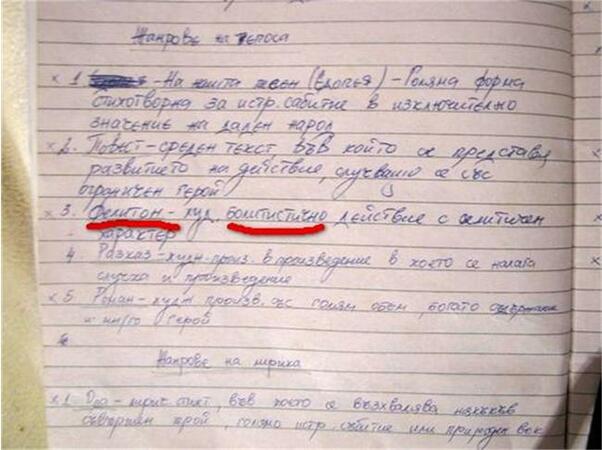 Жанрове на епоса
× 1. На ошта песен (Епопея) - Голяма форма
стихотворна за истр. сабитие в изключително
значение на даден народ
× 2. Повест - среден текст във който се представя
развитието на действие, случващо се със
ограничен герой
× 3. Фелитон - худ. болитистично действие с
характер
4. Разказ - худ. произ. в произведение в което се налага
случка и произведение
× 5. Роман - худж произв. със голям обем, богато
и много герой
Жанрове на лирика
× 1. Ода - лирич. стихт, във което се възхвалява някакъв
съвършен герой, голямо истр. събитие или природна